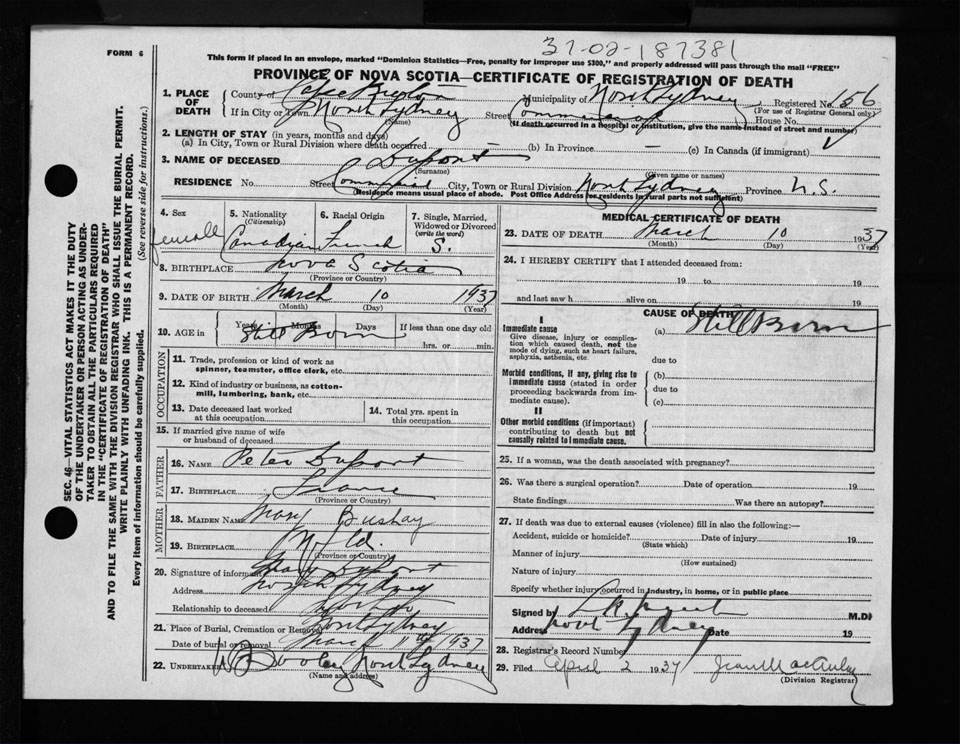 FORM 6
37-02-187381
This form if placed in an envelope, marked "Dominion Statistics—Free, penalty for improper use $300," and properly addressed will pass through the mail "FREE"
PROVINCE OF NOVA SCOTIA—CERTIFICATE OF REGISTRATION OF DEATH
1. PLACE OF DEATH
County of Cape Breton Municipality of North Sydney Registered No. 156
(For use of Registrar General only)
If in City or Town North Sydney Street Commercial House No.
(Name)
(If death occurred in a hospital or institution, give the name instead of street and number)
2. LENGTH OF STAY (in years, months and days)
(a) In City, Town or Rural Division where death occurred (b) In Province — (c) In Canada (if immigrant)
3. NAME OF DECEASED Dupont
(Surname) (Given name or names)
RESIDENCE No. Street Commercial City, Town or Rural Division North Sydney Province N.S.
(Residence means usual place of abode. Post Office Address for residents in rural parts not sufficient)
4. Sex
5. Nationality (Citizenship) Canadian
6. Racial Origin French
7. Single, Married, Widowed or Divorced (write the word) S.
8. BIRTHPLACE Nova Scotia
(Province or Country)
9. DATE OF BIRTH March 10 1937
(Month) (Day) (Year)
10. AGE in Years Months Days Still Born
If less than one day old
hrs. or min.
OCCUPATION
11. Trade, profession or kind of work as spinner, teamster, office clerk, etc.
12. Kind of industry or business, as cotton-mill, lumbering, bank, etc.
13. Date deceased last worked at this occupation
14. Total yrs. spent in this occupation
15. If married give name of wife or husband of deceased
FATHER
16. NAME Peter Dupont
17. BIRTHPLACE France
(Province or Country)
MOTHER
18. MAIDEN NAME Mary Bushay
19. BIRTHPLACE Nfld.
(Province or Country)
20. Signature of informant Dupont
Address North Sydney
Relationship to deceased
21. Place of Burial, Cremation or Removal North Sydney
Date of burial or removal March 11th 1937
22. UNDERTAKER Dooley North Sydney
(Name and address)
MEDICAL CERTIFICATE OF DEATH
23. DATE OF DEATH March 10 1937
(Month) (Day) (Year)
24. I HEREBY CERTIFY that I attended deceased from:
19 to 19
and last saw h alive on 19
CAUSE OF DEATH
I
Immediate cause
Give disease, injury or complication which caused death, not the mode of dying, such as heart failure, asphyxia, asthenia, etc
(a) Still Born
due to
Morbid conditions, if any, giving rise to immediate cause (stated in order proceeding backwards from immediate cause).
(b)
due to
(c)
II
Other morbid conditions (if important) contributing to death but not causally related to immediate cause.
25. If a woman, was the death associated with pregnancy?
26. Was there a surgical operation? Date of operation 19
State findings Was there an autopsy?
27. If death was due to external causes (violence) fill in also the following:—
Accident, suicide or homicide? Date of injury 19
(State which)
Manner of injury
(How sustained)
Nature of injury
Specify whether injury occurred in industry, in home, or in public place
Signed by M.D.
Address North Sydney Date 19
28. Registrar's Record Number
29. Filed April 2 1937
(Division Registrar)
SEC. 46—VITAL STATISTICS ACT MAKES IT THE DUTY
OF THE UNDERTAKER OR PERSON ACTING AS UNDER-
TAKER TO OBTAIN ALL THE PARTICULARS REQUIRED
IN THE "CERTIFICATE OF REGISTRATION OF DEATH"
AND TO FILE THE SAME WITH THE DIVISION REGISTRAR WHO SHALL ISSUE THE BURIAL PERMIT.
WRITE PLAINLY WITH UNFADING INK. THIS IS A PERMANENT RECORD.
Every item of information should be carefully supplied. (See reverse side for instructions.)